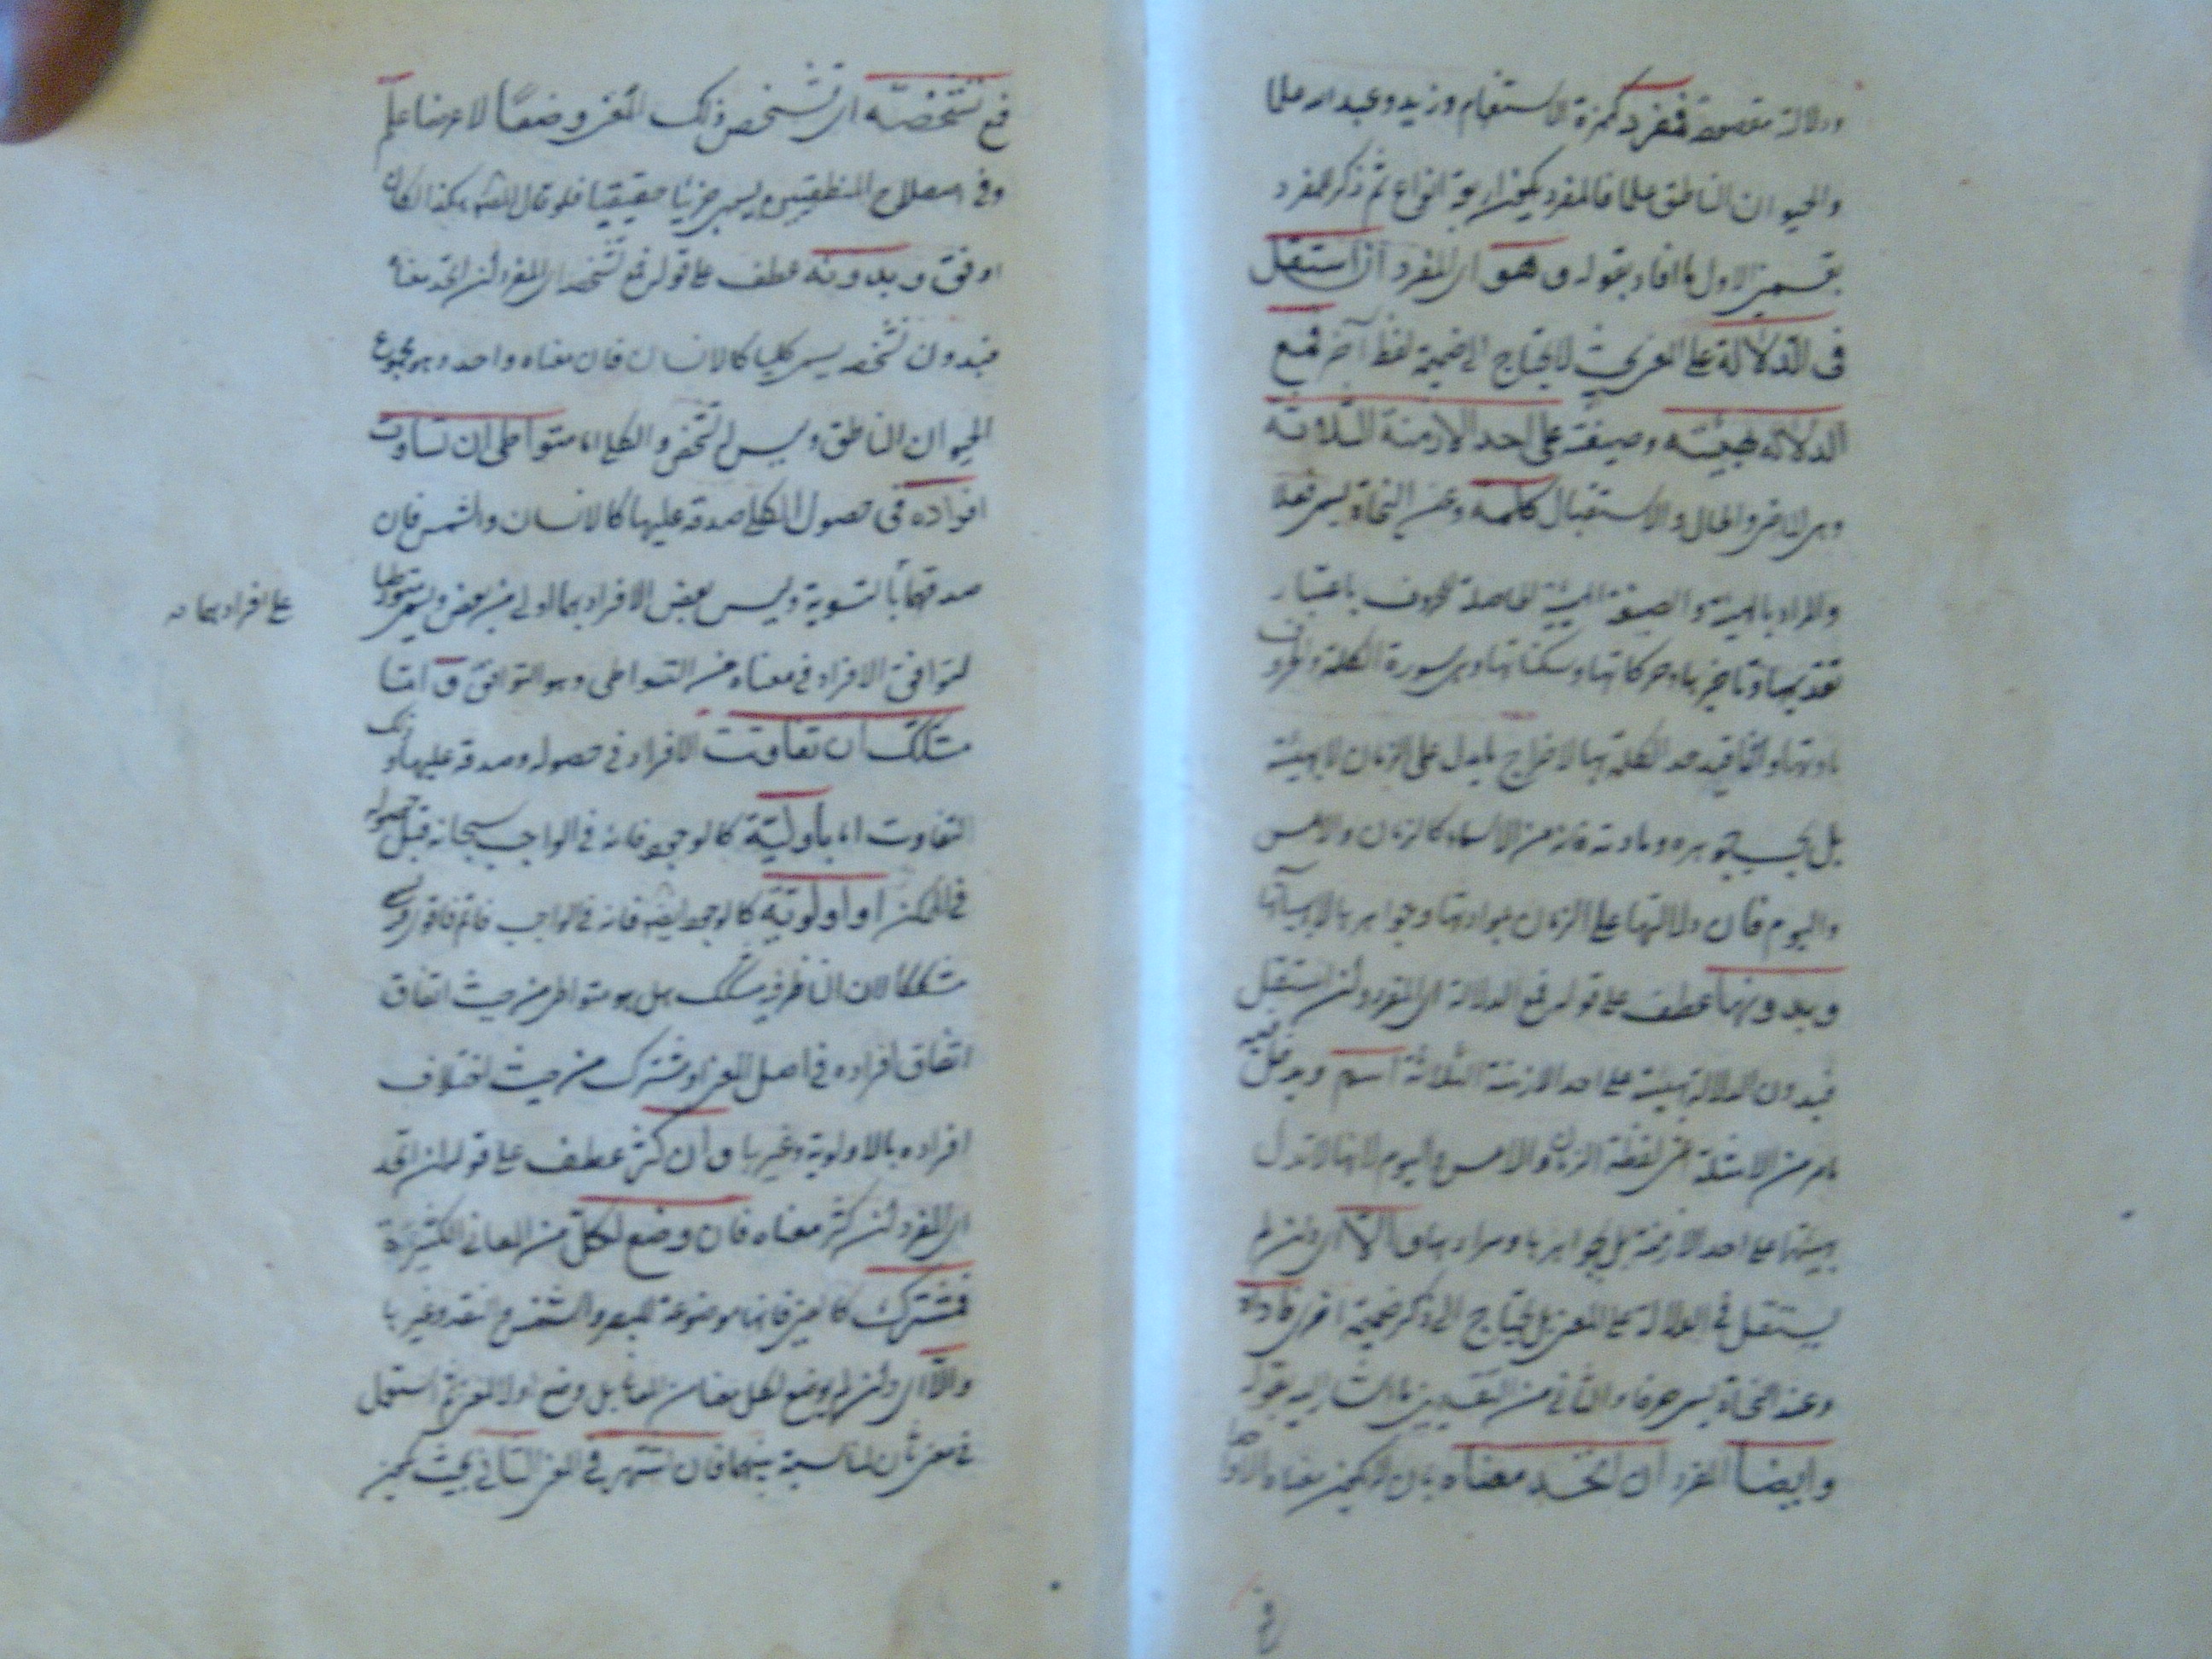 ودلالة مقصودة فمفرد كهمزة الاستفهام وزيد وعبد الله علما
والحيوان الناطق علما فالمفرد اربعة انواع ثم ذكر للمفرد
بقوله وهو اى المفرد ان استقل
فى الدلالة على المعنى بحيث لا يحتاج الى ضميمة لفظ آخر فمع
الدلالة بهيئته وصيغته على احد الازمنة الثلاثة
وهى الماضى والحال والاستقبال كلمة وعند النحاة يسمى فعلا
والمراد بالهيئة والصيغة الهيئة الحاصلة للحروف باعتبار
تقديمها وتاخيرها وحركاتها وسكناتها وهى صورة الكلمة والحروف
مادتها وانما قيد حد الكلمة بها لاخراج ما يدل على الزمان لا بهيئته
بل بحسب جوهره ومادته من الاسماء كالزمان والامس
واليوم فان دلالتها على الزمان بموادها وجواهرها لا بهيآتها
وبدونها عطف على قوله فمع الدلالة اى المفرد ان استقل
فبدون الدلالة بهيئته على احد الازمنة الثلاثة اسم ويدخل فيه
ما مر من الامثلة لفظة الزمان والامس واليوم لانها لا تدل
بهيئتها على احد الازمنة بل بجواهرها وموادها والا اى وان لم
يستقل فى الدلالة على المعنى بل يحتاج الى ذكر ضميمة اخرى فاداة
وعند النحاة يسمى حرفا والثانى من التقسيمين ما اشار اليه بقوله
وايضا المفرد ان اتحد معناه بان لا يكون معناه الا واحدا
فمع
فمع تشخصه اى تشخص ذلك المعنى وضعا لا عرضا علم
وفى اصطلاح المنطقيين يسمى جزئيا حقيقيا فلو قال المصنف هكذا لكان
اوفق وبدونه عطف على قوله فمع تشخصه اى المفرد ان اتحد معناه
فبدون تشخصه يسمى كليا كالانسان فان معناه واحد وهو مجموع
الحيوان الناطق وليس له تشخص والكلى اما متواطى ان تساوت
افراده فى حصول الكلى وصدقه عليها كالانسان والشمس فان
صدقهما بالتسوية وليس بعض الافراد بهما اولى من بعض ويسمى متواطيا
على افرادهما صح
لتوافق الافراد فى معناه من التواطى وهو التوافق واما
مشكك ان تفاوتت الافراد فى حصوله وصدقه عليها وذلك
التفاوت اما باولية كالوجود فانه فى الواجب سبحانه قبل حصوله
فى الممكن او اولوية كالوجود ايضا فانه فى الواجب
مشككا لان الناظر فيه يشكك هل هو متواطى من حيث اتفاق
اتفاق افراده فى اصل المعنى او مشترك من حيث اختلاف
افراده بالاولوية وغيرها وان كثر عطف على قوله ان اتحد
اى المفرد ان كثر معناه فان وضع لكل من المعانى الكثيرة
فمشترك كالعين فانها موضوعة للبصر والشمس والنقد وغيرها
والا اى وان لم يوضع لكل معنى من المعانى بل وضع اولا لمعنى ثم استعمل
فى معنى ثان لمناسبة بينهما فان اشتهر فى المعنى الثانى بحيث يكون